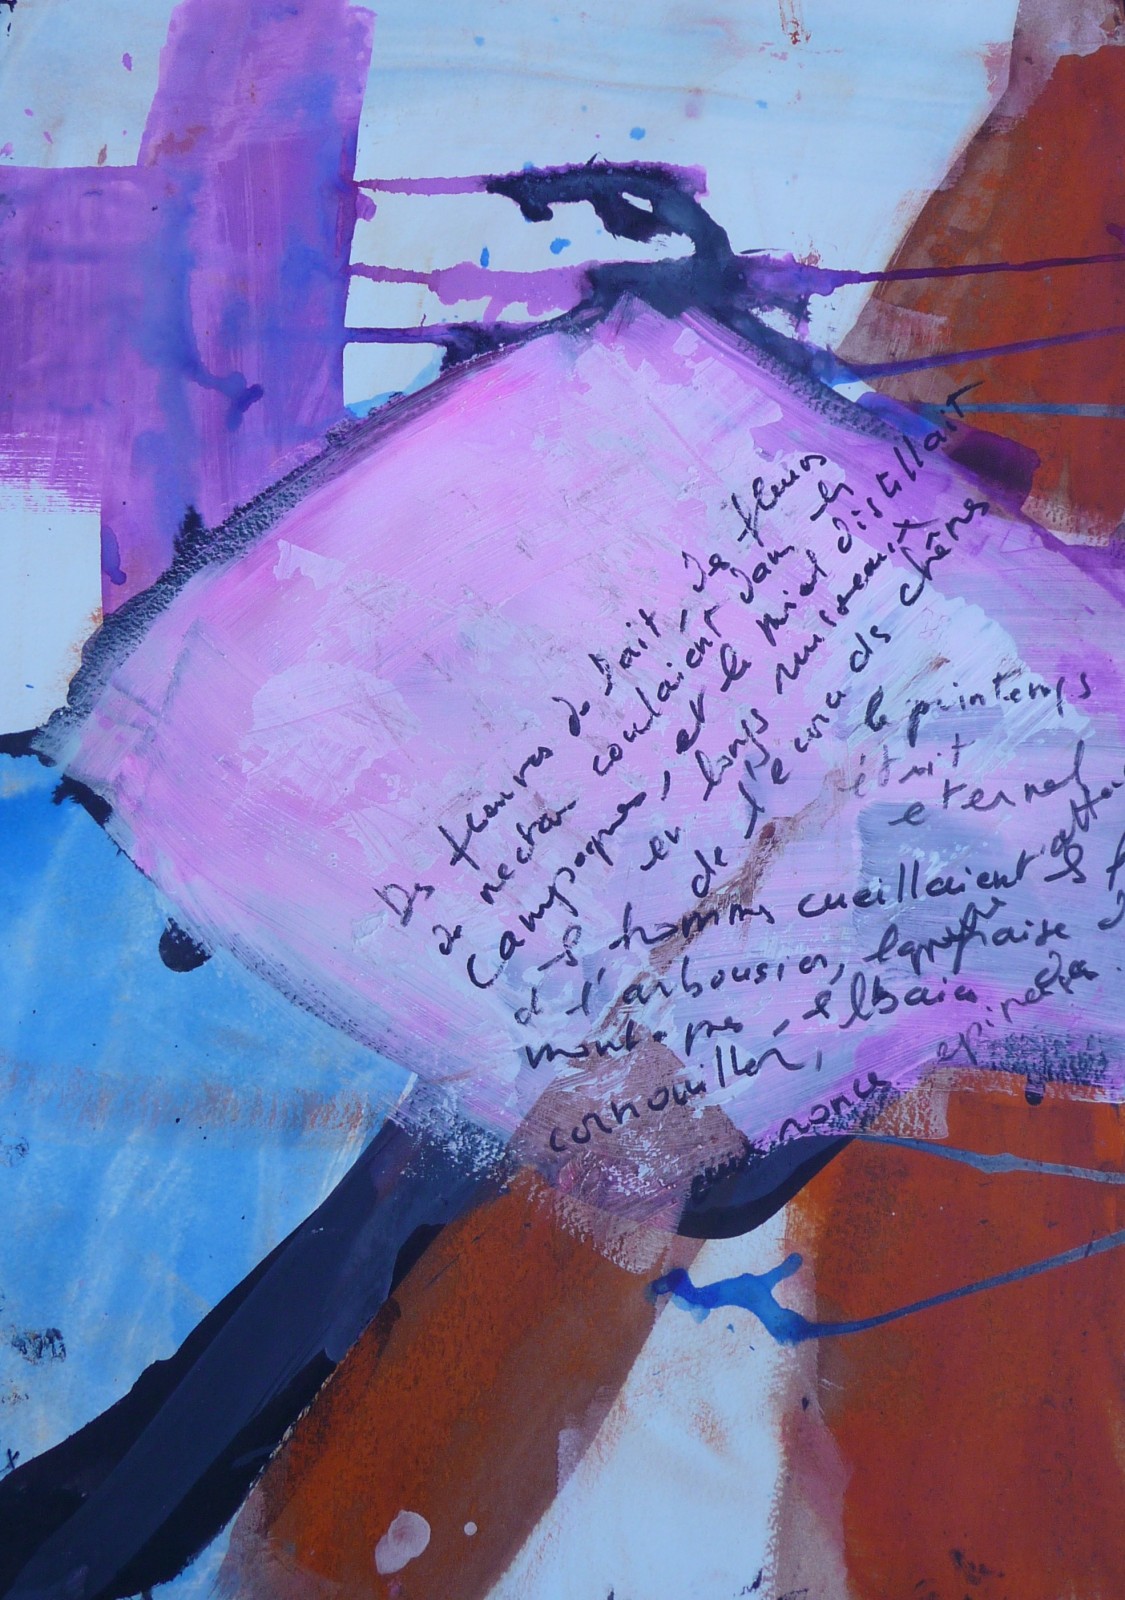 Des fleuves de lait, de fleuves
de nectar coulaient dans les
campagnes, et le miel distillait
en longs ruisseaux
de l'écorce des chênes
le printemps
était
eternel
les hommes cueillaient
d l'arbousier, la fraise
montagnes, les baies
cornouiller,
ronces epineuses